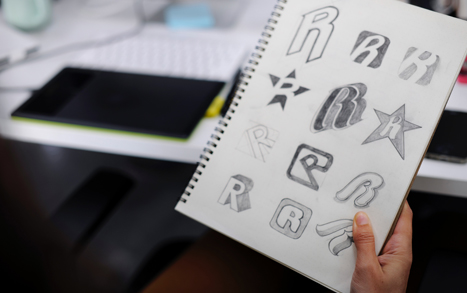 R R R
R R R
R R R
R R R